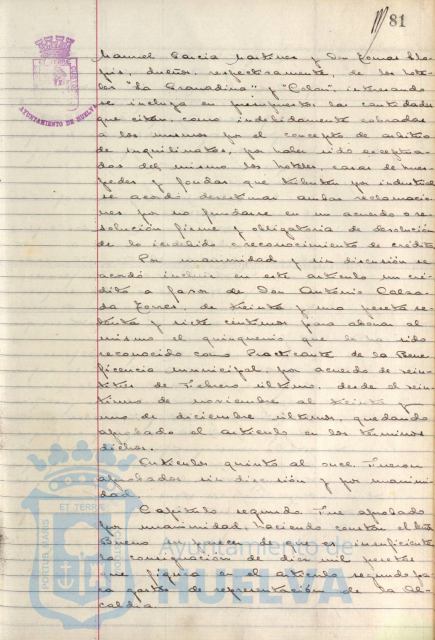 81
AYUNTAMIENTO DE HUELVA
Manuel García Martínez y Don Tomas
dueños, respectivamente, de los hote-
les "La Granadina" y "Colon", interesando
se incluya en presupuestos las cantidades
que citan, como indebidamente cobradas
a los mismos por el concepto de arbitrio
de inquilinatos, por haber sido exceptua-
dos del mismo los hoteles, casas de hues-
pedes y fondas que tributan por industrial
se acordó desestimar ambas reclamacio-
nes por no fundarse en un acuerdo o re-
solución firme y obligatoria de devolución
de lo indebido o reconocimiento de crédito
Por unanimidad y sin discusión se
acordó incluir en este artículo un cré-
dito a favor de Don Antonio Calza-
da Torres, de treinta y una peseta se-
tenta y siete centimos para abonar al
mismo el quinquenio que le ha sido
reconocido como Practicante de la Bene-
ficencia municipal, por acuerdo de vein-
titres de Febrero último, desde el vein-
tiuno de noviembre al treinta y
uno de diciembre últimos, quedando
aprobado el artículo en los terminos
dichos.
Artículos quinto al once. Fueron
aprobados sin discusión y por unanimi-
dad
Capitulo segundo. Fue aprobado
por unanimidad, haciendo constar el Señor
su parecer de que es insuficiente
la consignación de diez mil pesetas
que figura en el artículo segundo pa-
ra gastos de representación de la Al-
caldía.
PORTUS MARIS ET TERRAE CUSTODIA
Ayuntamiento de
HUELVA